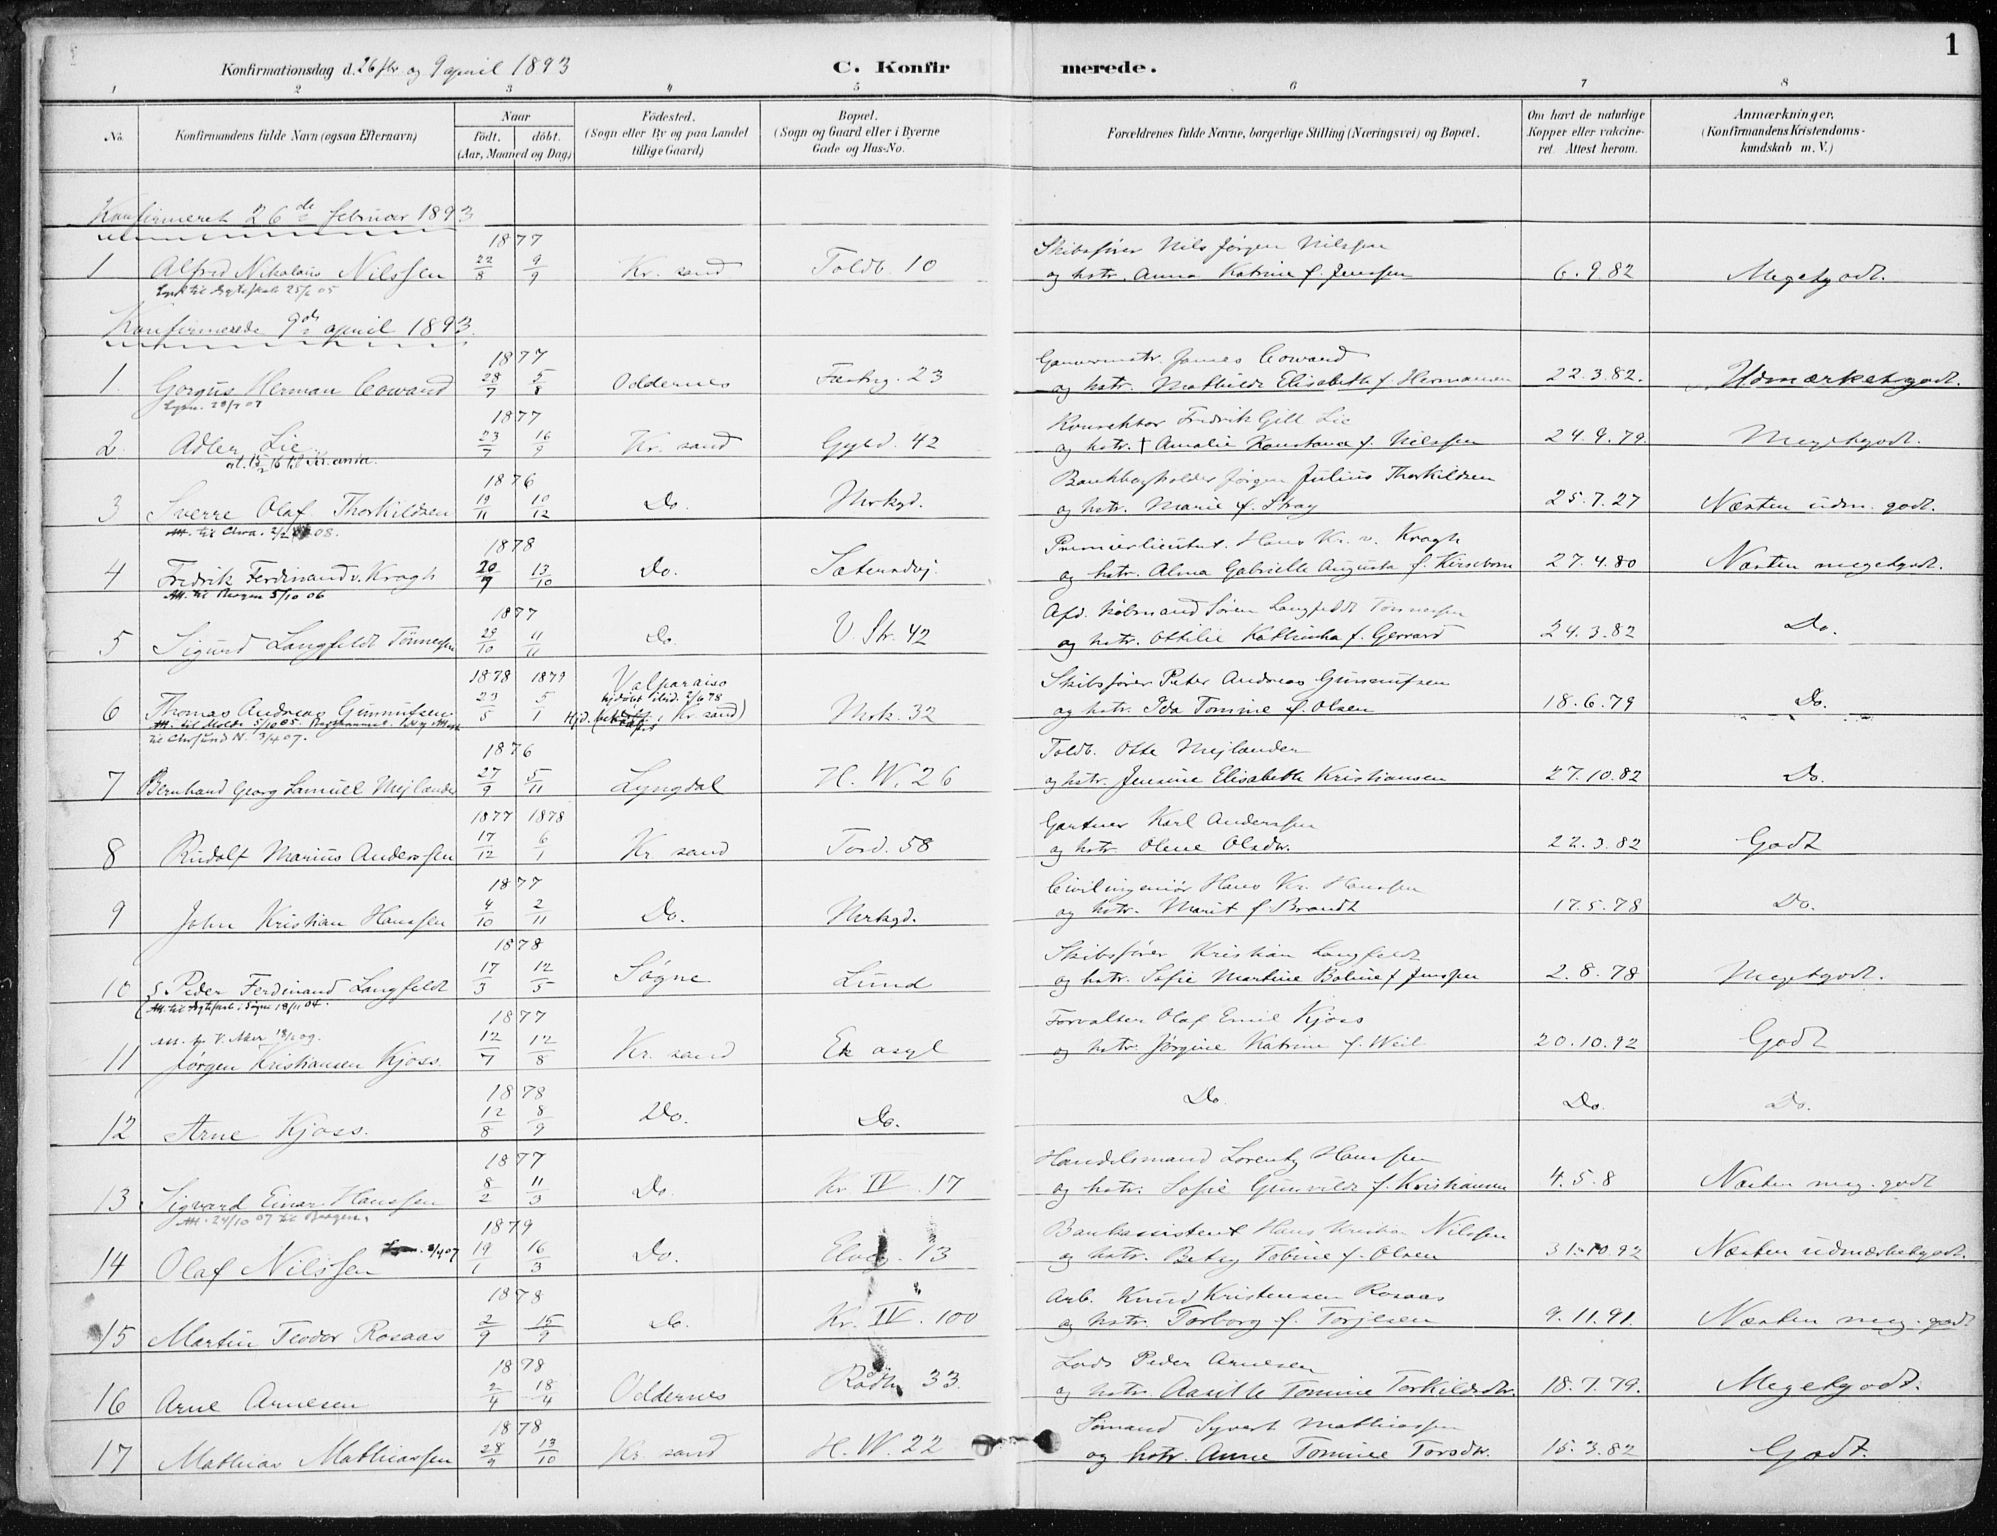 1
Konfirmationsdag d. 26 fbr og 9 april 1893 C. Konfirmerede.
1 2 3 4 5 6 7 8
No. Konfirmandens fulde Navn (ogsaa Efternavn) Naar født. døbt. (Aar, Maaned og Dag) Fødested. (Sogn eller By og paa Landet tillige Gaard) Bopæl. (Sogn og Gaard eller i Byerne Gade og Hus-No. Forældrenes fulde Navne, borgerlige Stilling (Næringsvei) og Bopæl. Om havt de naturlige Kopper eller vakcineret. Attest herom. Anmærkninger, (Konfirmandens Kristendomskundskab m. V.)
Konfirmeret 26de februar 1893
1877 Skibsfører Nils Jørgen Nilssen
1 Alfred Nikolais Nilssen 22/8 9/9 Kr. sand Toldb. 10 og hstr. Anna Katrine f. Jenssen 6.9.82 Megetgodt.
25/6 05
Konfirmerede 9de april 1893.
1877 James Cowand
1. Gorgus Herman Cowand 28/7 5/8 Oddernes Fæstng. 23 og hstr. Mathilde Elisabeth f. Hermansen 22.3.82. Udmærketgodt.
1877 Konrektor Fredrik Gill Lie
2. Adler Lie 23/7 16/9 Kr. sand Gyld. 42 og hstr. † Amalie Konstance f. Nilssen 24.9.79. Megetgodt.
1876 Bankbogholder Jørgen Julius Thorkildsen
3 Sverre Olaf Thorkildsen 19/11 10/12 Do. Mrkgd. og hstr. Marie f. Stray 25.7.27 Næsten udm. godt.
1878 Premierlieutnt. Hans Kr. v. Krogh
4 Fredrik Ferdinand v. Krogh 20/9 13/10 Do. og hstr. Alma Gabrielle Augusta f. 27.4.80 Næsten megetgodt.
Att. til 5/10 06
1877 Søren Langfeldt Tønnessen
5 Sigurd Langfeldt Tønnessen 29/10 11/11 Do. V. Str. 42 og hstr. Ottilie Kathinka f. Gerrard 24.3.82 Do.
1878 1879 Valparaiso Skibsfører Peter Andreas Gunnufsen
6 Thomas Andreas Gunnufsen 23/5 5/1 Mrk. 32 og hstr. Ida Tomine f. Olsen 18.6.79 Do.
til Chrsund N. 3/4 07.
1876 Toldb. Otte Mejlander
7 Bernhard Georg Samuel Mejlander 27/9 5/11 Lyngdal H. W. 26 og hstr. Jensine Elisabeth Kristiansen 27.10.82 Do.
1877 1878 Gartner Karl Anderssen
8 Rudolf Marius Anderssen 17/12 6/1 Kr sand Tord. 58 og hstr. Oline Olsdtr. 22.3.82 Godt
1877 Civilingeniør Hans Kr. Hanssen
9 John Kristian Hanssen 4/10 2/11 Do. Mrkgd. og hstr. Marit f. Brandt 17.5.78 Do.
1878 Skibsfører Kristian Langfeldt
10 Peder Ferdinand Langfeldt 17/3 12/5 Søgne Lund og hstr. Sofie Martine Boline f Jenssen 2.8.78 Megetgodt.
1877 Forvalter Olaf Emil Kjoss
11 Jørgen Kristiansen Kjoss. 12/7 12/8 Kr. sand Ek asyl og hstr. Jørgine Katrine f. Weil 20.10.92 Godt
1878
12 Arne Kjoss. 12/8 8/9 Do. Do. Do. Do. Do.
1877 Handelsmand Lorentz Hanssen
13 Sigvard Einar Hanssen 8/2 11/3 Do. Kr. IV. 17 og hstr. Sofie Gunvilde f. Kristiansen 4.5.8 Næsten meg. godt
Att. 24/10 07 til
1879 Bankassistent Hans Kristian Nilssen
14 Olaf Nilssen 19/1 16/3 Do. 13 og hstr. Betzy Tobine f. Olsen 31.10.92 Næsten udmærketgodt.
1878 Arb. Knud Kristensen Rosaas
15 Martin Teodor Rosaas 2/9 15/9 Do. Kr. IV. 100 og hstr. Torborg f. Torjesen 9.11.91. Næsten meg. godt
1878 Lods Peder Arnesen
16 Arne Arnesen 2/4 18/4 Oddernes Rådh. 33. og hstr. Aasille Tomine Torkildsdtr. 18.7.79. Megetgodt.
1878 Sømand Syvert Mathiassen
17 Mathias Mathiassen 28/9 13/10 Kr. sand H. W. 22 og hstr. Anne Tomine Torsdtr. 15.3.82 Godt.